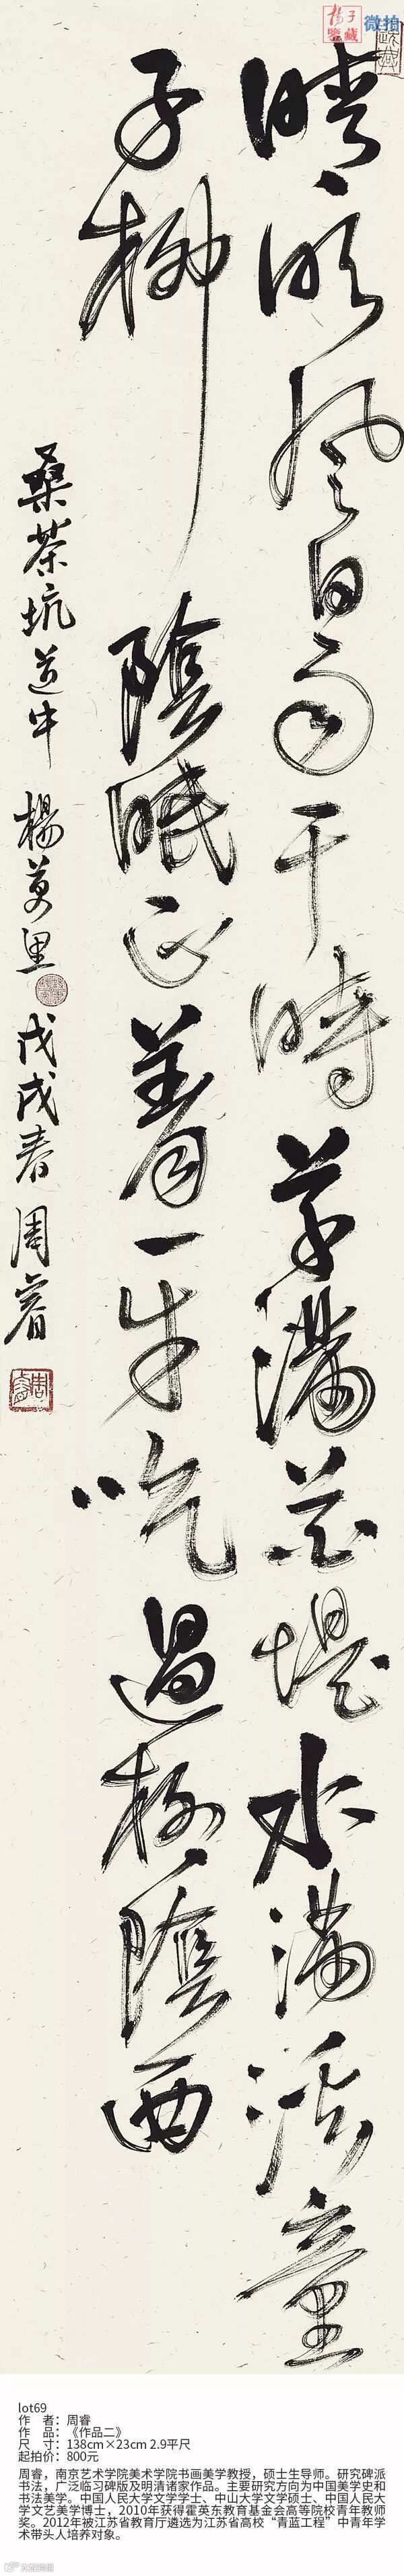 晴明風日雨干時草滿花堤水滿溪童
子柳陰眠正着一牛吃過柳陰西
桑茶坑道中 楊萬里 戊戌春 周睿
微拍
lot69
作 者：周睿
作 品：《作品二》
尺 寸：138cm×23cm 2.9平尺
起拍价：800元
周睿，南京艺术学院美术学院书画美学教授，硕士生导师。研究碑派
书法，广泛临习碑版及明清诸家作品。主要研究方向为中国美学史和
书法美学。中国人民大学文学学士、中山大学文学硕士、中国人民大
学文艺美学博士，2010年获得霍英东教育基金会高等院校青年教师
奖。2012年被江苏省教育厅遴选为江苏省高校“青蓝工程”中青年学
术带头人培养对象。